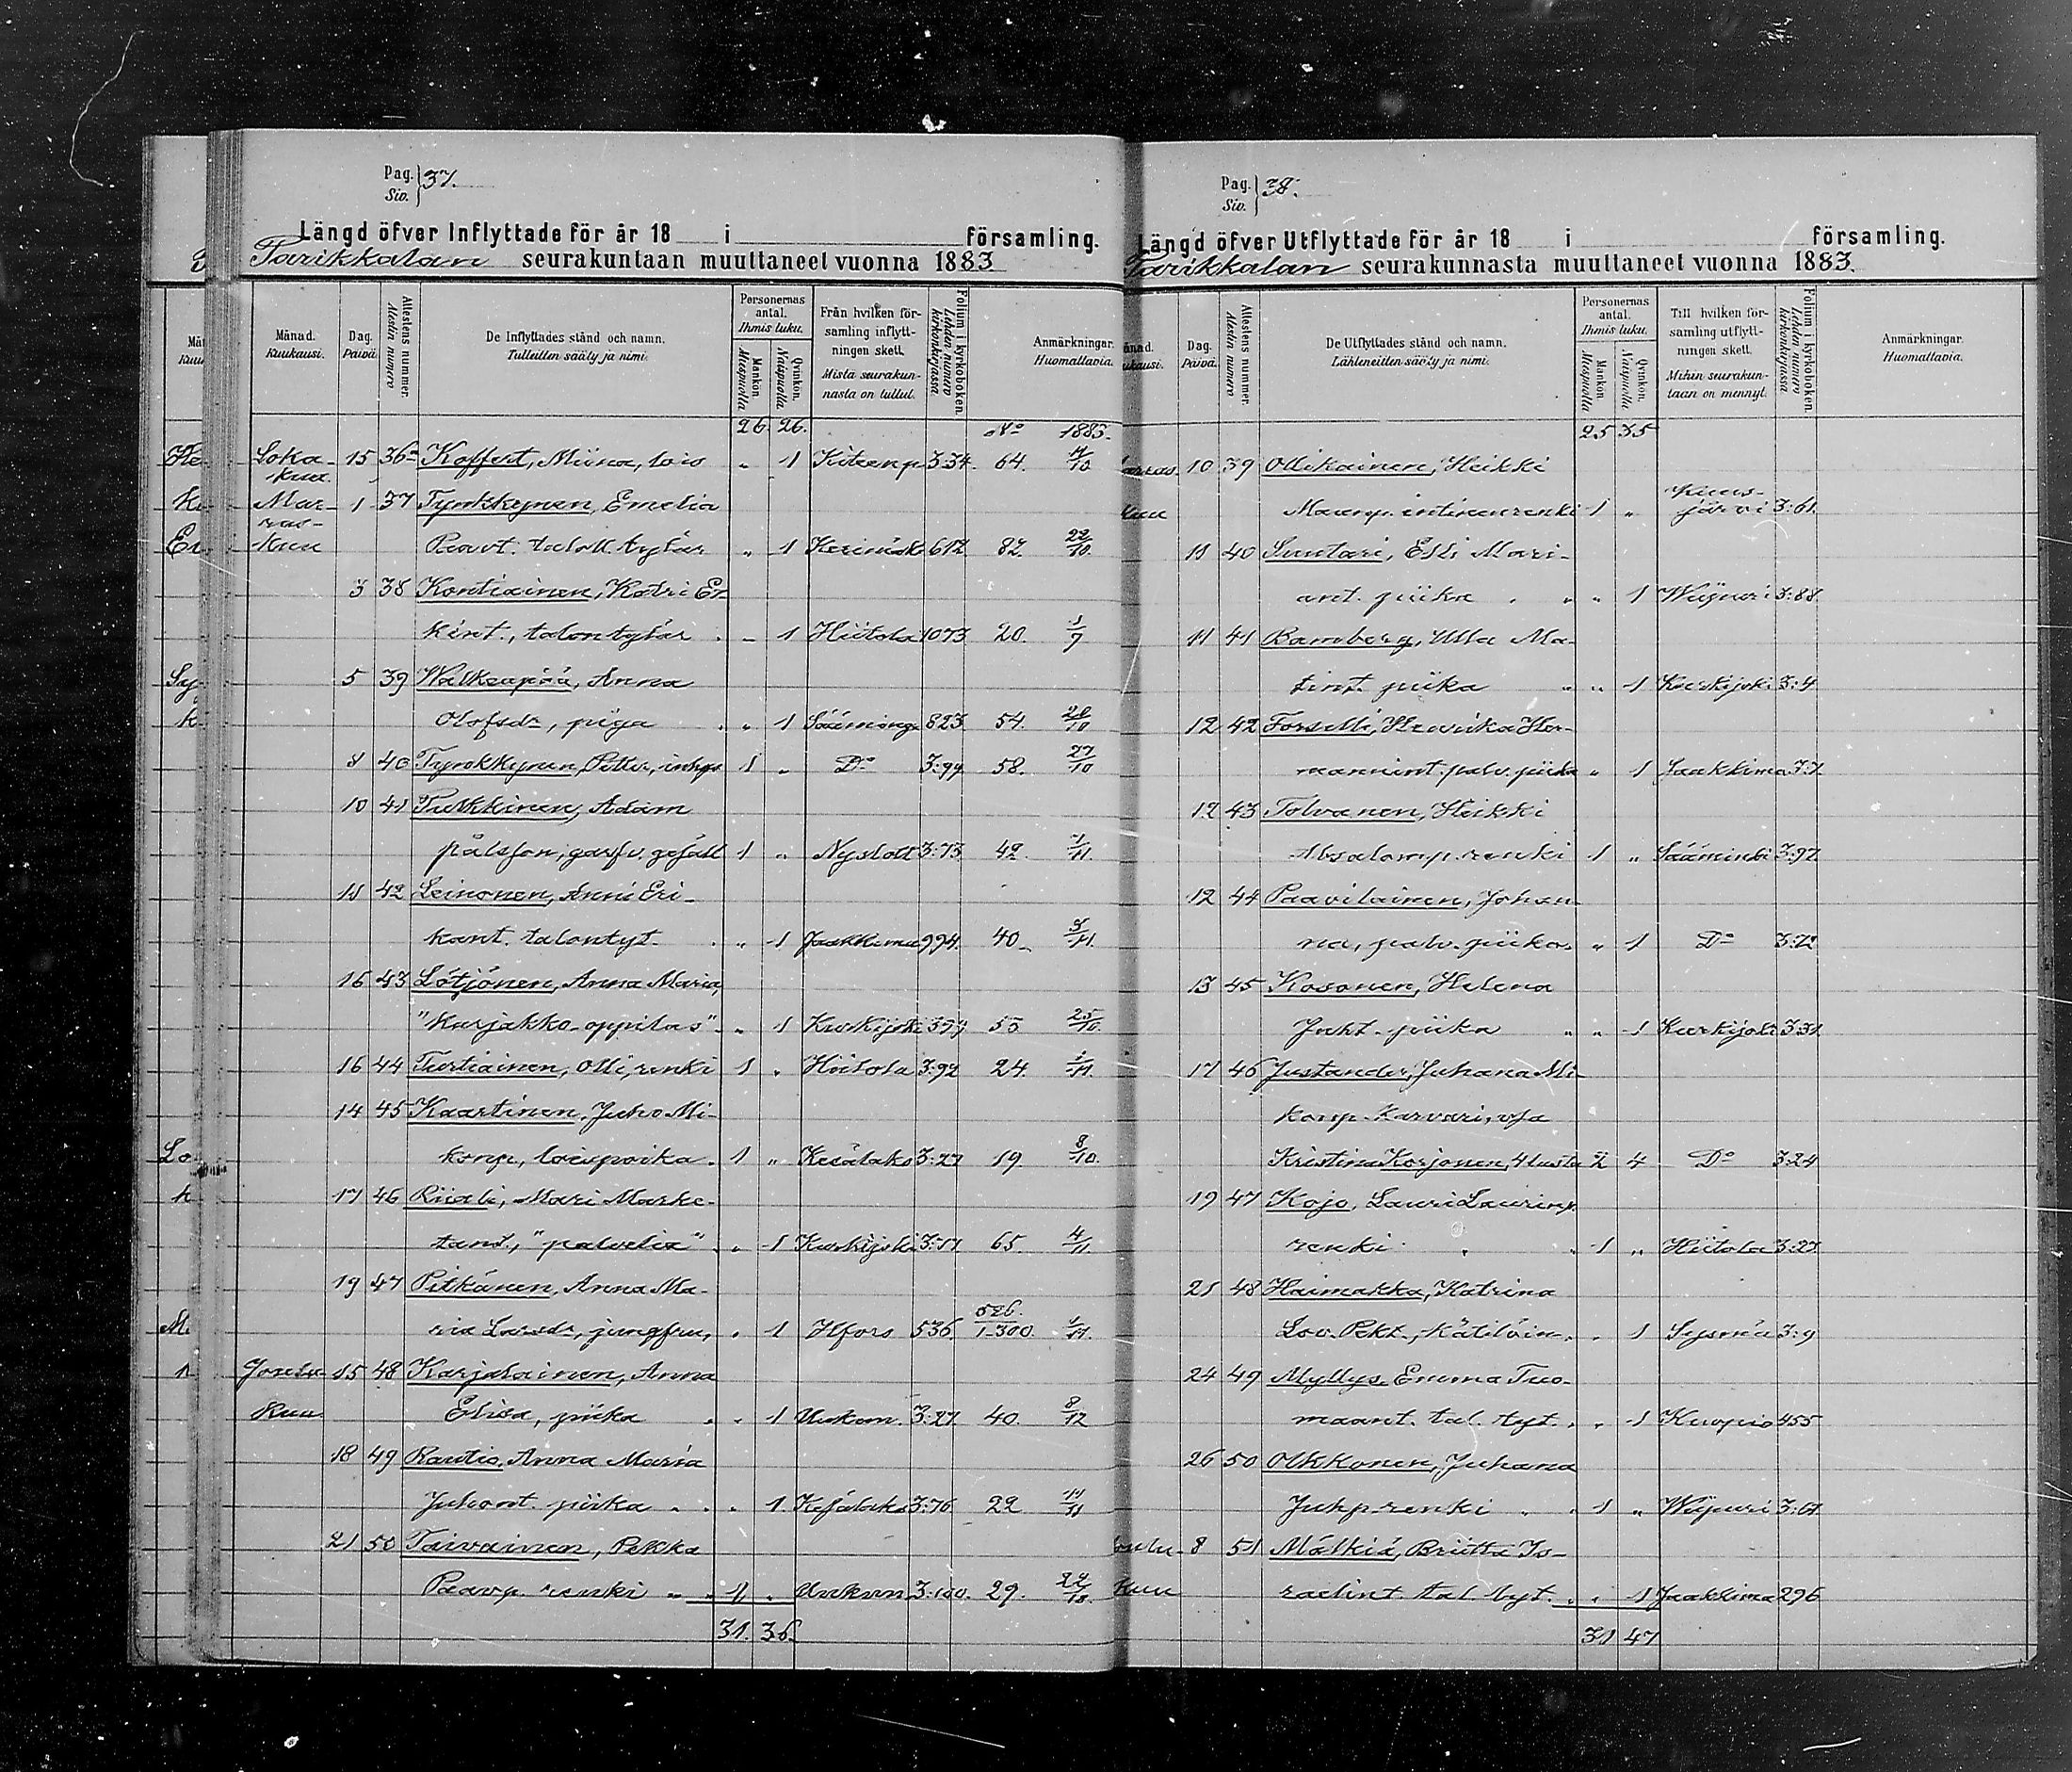 Pag. Siv. } 37.
Längd öfver Inflyttade för år 18 i församling.
Parikkalan seurakuntaan muuttaneet vuonna 1883
Månad. Kuukausi. Dag. Päivä. Attestens nummer. Atestin numero De Inflyttades stånd och namn. Tulleitten sääty ja nimi. Personernas antal. Ihmis luku. Mankön. Miespuolia Qvinkön. Naispuolia Från hvilken församling inflyttningen skett. Mistä seurakunnasta on tullut. Folium i kyrkoboken. Lehden numero kirkonkirjassa Anmärkningar. Huomattavia.
26. 26. No 1883.
Loka- 15 36 Koffert, Miina, lois " 1 Kiteenp 334. 64. 11/10
kuu.
Mar- 1 37 Tynkkynen, Emelia
ras-
kuu Paavt. taloll. tytär " 1 Kerimäki 612 82. 22/10
3 38 Kontiainen, Katri Er-
kint., talon tytär " 1 Hiitola 1073 20. 1/9
5 39 Walkeapää, Anna
Olofsdr, piga " 1 Sääminge 823. 54. 28/10
8 40 Tynkkynen, Petter, inhys 1 " Do 3:99 58. 27/10
10 41 Pulkkinen, Adam
pålsson, garfv. gesäll 1 " Nyslott 3:73. 42. 7/11
11 42 Leinonen, Anni Eri-
kant. talontyt. " 1 Jaakkima 994. 40. 3/11.
16 43 Lötjönen, Anna Maria,
"karjakko-oppilas" " 1 Kurkijoki 399 55 25/10.
16 44 Turtiainen, Olli, renki 1 " Hiitola 3:92 24. 1/11.
14 45 Kaartinen, Juho Mi-
konp, loispoika. 1 " Kesälaks 3:27 19 8/10.
17 46 Riiali, Mari Marke-
tant., "palvelia" " 1 Kurkijoki 3:51 65. 4/11
19 47 Pitkänen, Anna Ma-
ria Larsdr, jungfru, " 1 Hfors 536. 526. 1-300. 1/11.
Joulu- 15 48 Karjalainen, Anna
kuu. Elisa, piika " 1 Uukun. 3:27. 40. 8/12
18 49 Rautio, Anna Maria
Juhont. piika " 1 Kesälaks 3:76 22 11/11
21 50 Taivainen, Pekka
Paavp. renki " 1 " Uukun 3:100. 29. 22/10
31. 36.
Pag. Siv. } 38.
Längd öfver Utflyttade för år 18 i församling.
Parikkalan seurakunnasta muuttaneet vuonna 1883.
Dag. Päivä. Attestens nummer. Atestin numero De Utflyttades stånd och namn. Lähteneitten sääty ja nimi. Personernas antal. Ihmis luku. Mankön. Miespuolia Qvinkön. Naispuolia Till hvilken församling utflyttningen skett. Mihin seurakuntaan on mennyt. Folium i kyrkoboken. Lehden numero kirkonkirjassa Anmärkningar. Huomattavia.
25 35
10 39 Ollikainen, Heikki
kuu Maunp. intinen renki 1 " järvi 3:61.
11 40 Suntari, Elli Mari-
ant. piika " " 1 Wiipuri 3:88.
11 41 Bamberg, Ulla Ma-
tint. piika " " 1 Kurkijoki 3:4
12 42 Forselli, Henrika Her-
mannint. palv. piika " 1 Jaakkima 3:7.
12 43 Tolvanen, Heikki
Absalomp. renki 1 " Sääminki 3:97.
12 44 Paavilainen, Johan-
na, palv. piika. " 1 Do 3:72
13 45 Kosonen, Helena
Juht. piika " " 1 Kurkijoki 331.
17 46 Justander, Juhana Mi-
konp. Karvari, vsa
Kristina Korjonen, 4 lasta 2 4 Do 3:24
19 47 Kojo, Lauri Laurinp.
renki " 1 " Hiitola 3:27.
21 48 Haimakka, Katrina
Lov. Pekt., kätilöin. " 1 Sysmä 3:9
24 49 Myllys, Emma Tuo-
maant. tal. tyt. " " 1 Kuopio 455
26 50 Olkkonen, Juhana
Juhp renki " 1 " Wiipuri 3:61
oulu- 8 51 Mälkiä, Briitta Is-
kuu raelint. tal. tyt. " " 1 Jaakkima 296
31 47